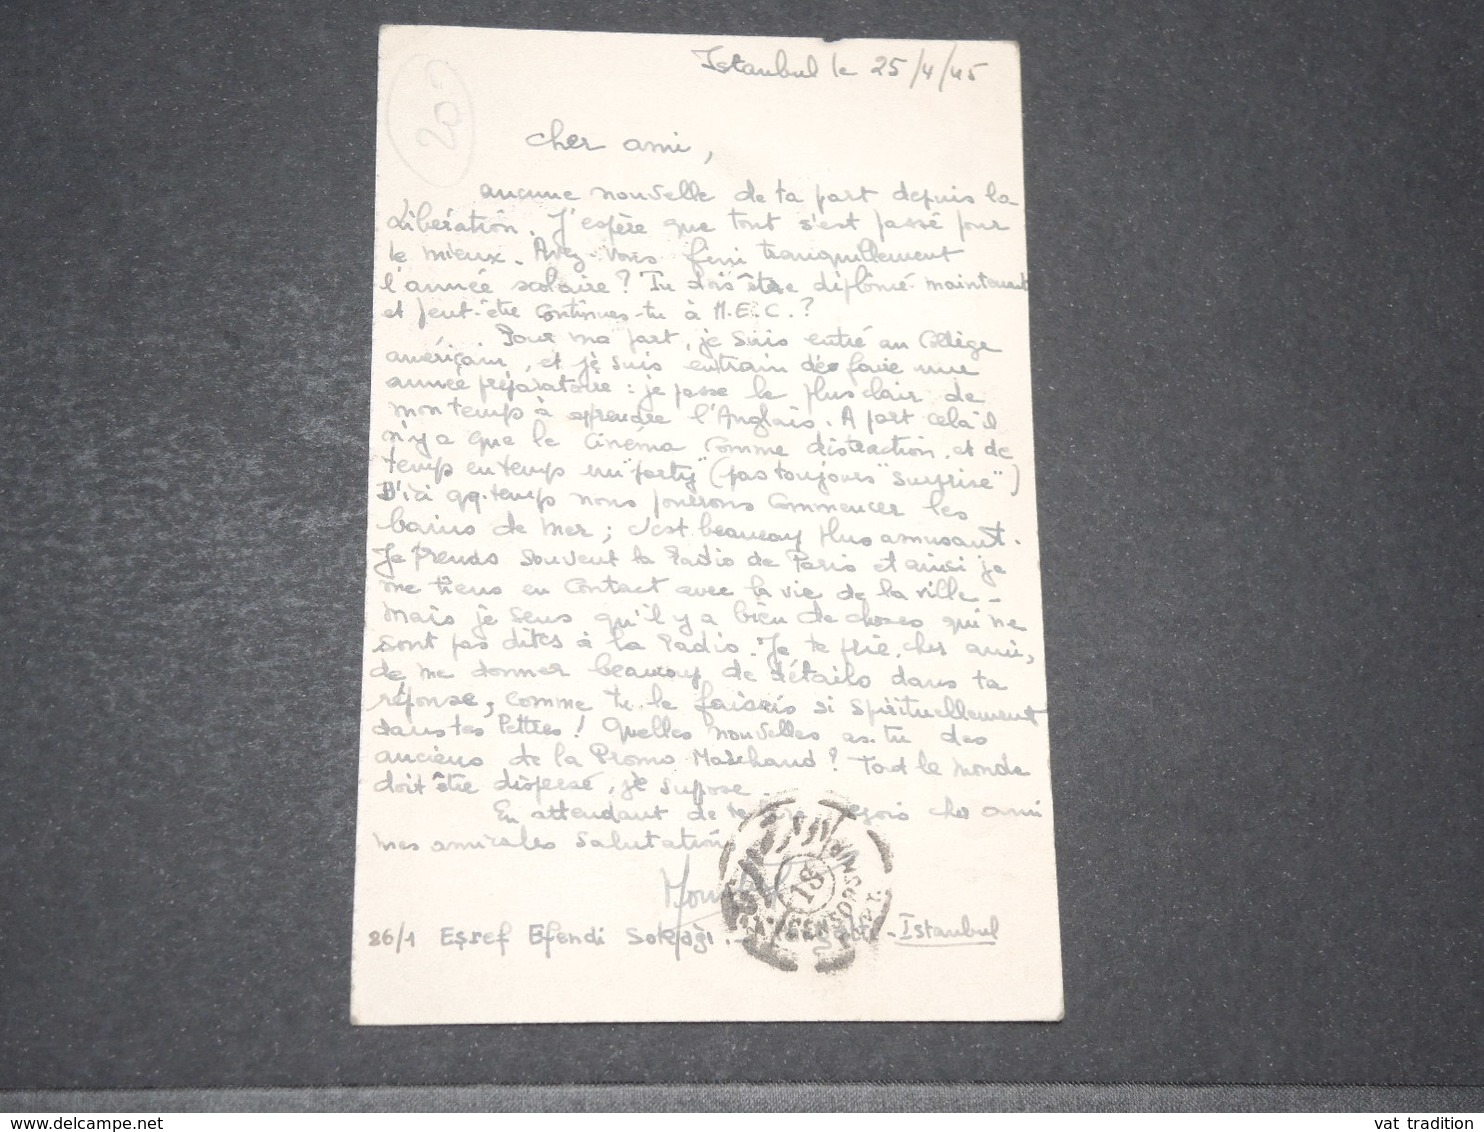 202
Istanbul le 25/4/45
Cher ami,
aucune nouvelle de ta part depuis la
Libération. J'espère que tout s'est passé pour
le mieux. Avez-vous fini tranquillement
l'année scolaire? Tu dois être diplômé maintenant
et peut-être continues-tu à H.E.C.?
Pour ma part, je suis entré au Collège
américain, et je suis entrain de faire une
année préparatoire: je passe le plus clair de
mon temps à apprendre l'Anglais. A part cela il
n'y a que le Cinéma comme distraction, et de
temps en temps un "party" (pas toujours "surprise")
D'ici qq. temps nous pourrons commencer les
bains de mer; c'est beaucoup plus amusant.
Je prends souvent la Radio de Paris et ainsi je
me tiens en contact avec la vie de la ville -
Mais je sens qu'il y a bien de choses qui ne
sont pas dites à la Radio. Je te prie, cher ami,
de me donner beaucoup de détails dans ta
réponse, comme tu le faisais si spirituellement
dans tes lettres! Quelles nouvelles as-tu des
anciens de la Promo Marchand? Tout le monde
doit être dispersé, je suppose.
En attendant de te reçois cher ami
mes amicales salutations
26/1 Eşref Efendi Sokağı. - Istanbul
18
CENSOR
vat tradition
www.delcampe.net